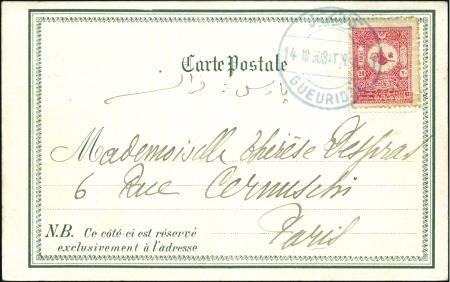 Carte Postale
14 10
GUEURID
Mademoiselle Thérèse Despras
6 Rue Cernuschi
Paris
N.B. Ce côté-ci est réservé
exclusivement à l'adresse